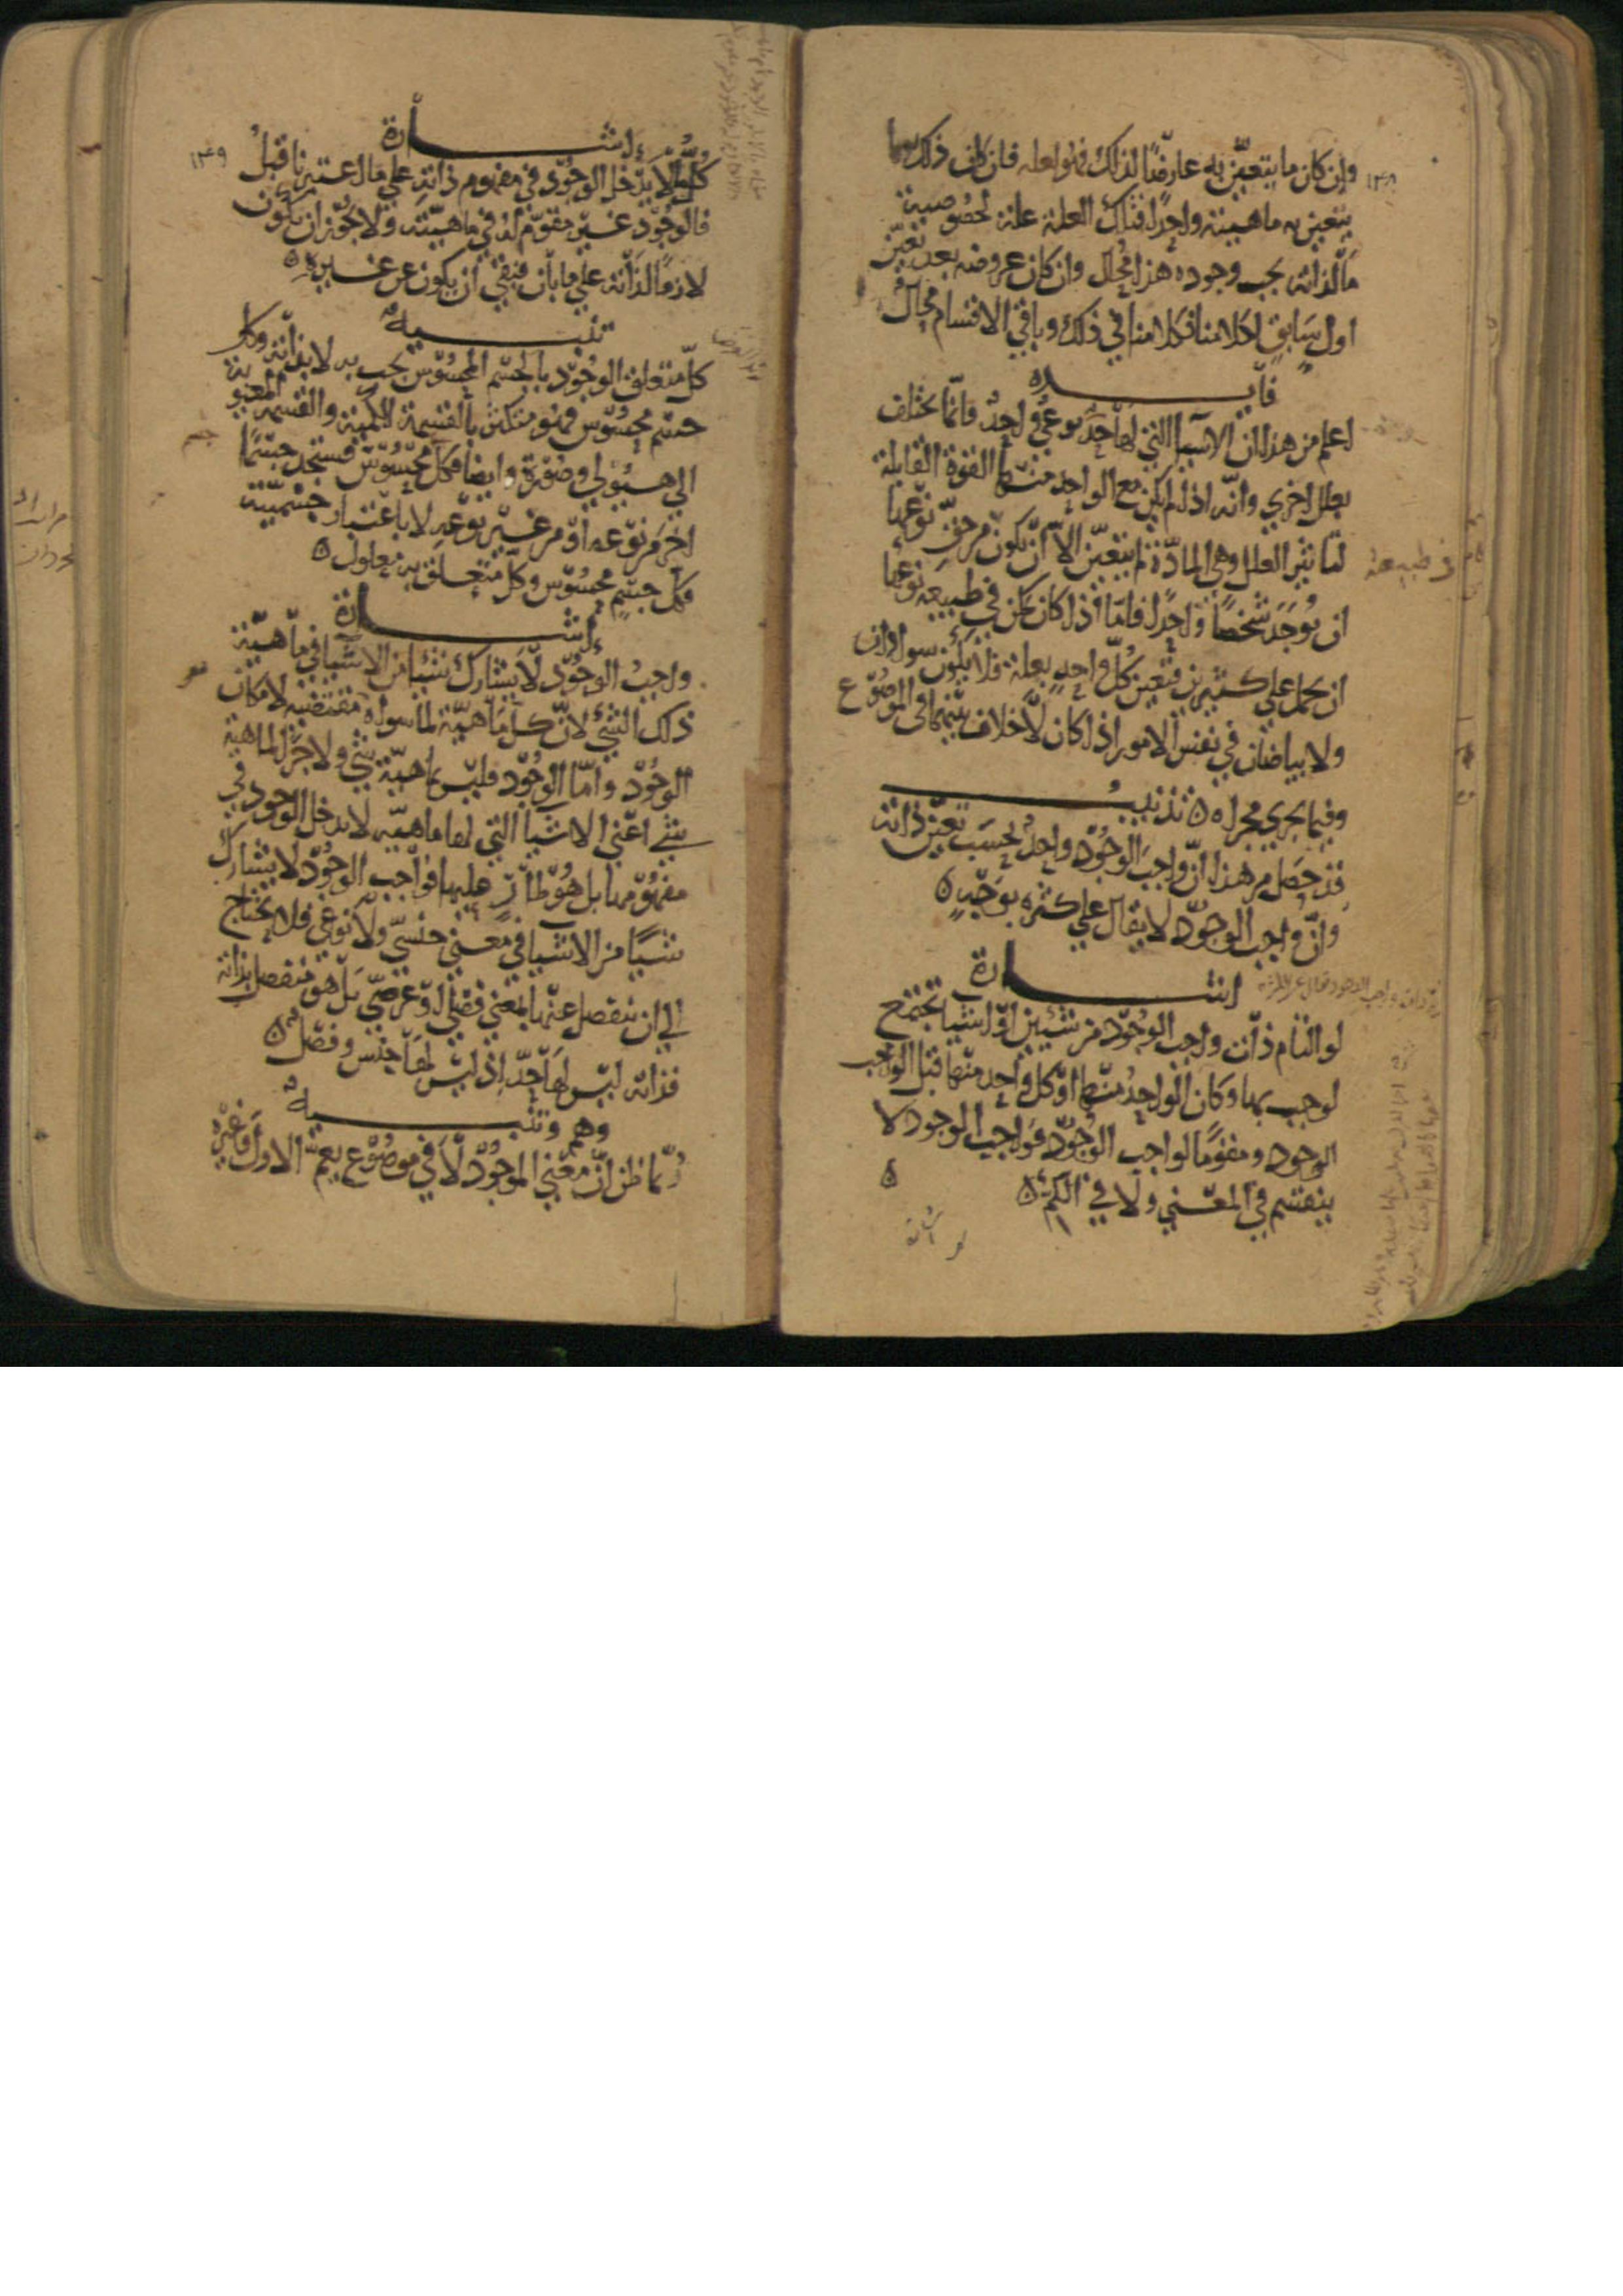 وإن كان ما يتعين به عارضًا لذلك فهو لعله فان كان ذلك وما
يتعين به ماهيته واحدًا فتلك العلة علة لخصوصية
ما لذاته يجب وجوده هذا محال وان كان عروضه بعد تعين
اول سابق لكلامنا فكلامنا في ذلك وباقي الاقسام محال
فايده
اعلم من هذا ان الاشيا التي لها حد نوعي واحد فانما تختلف
بعلل اخري وانه اذا لم يكن مع الواحد منها القوة القابلة
لتاثير العلل وهي المادة لم يتعين الا ان يكون من حق نوعها
ان يوجد شخصا واحدا فاما اذا كان يمكن في طبيعه نوعها
ان يحمل علي كثيرين فتعين كل واحد بعلة فلا يكون سوادان
ولا بياضان في نفس الامور اذا كان لا خلاف بينهما في الموضوع
وفيما يجري مجراه ه تذنيب
قد حصل من هذا ان واجب الوجود واحد بحسب تعين ذاته
وان واجب الوجود لا يقال علي كثرة بوجه ه
اشارة
لو التام ذات واجب الوجود من شيئين او اشيا تجتمع
لوجب بها وكان الواحد منها او كل واحد منها قبل الواجب
الوجود ومقوما لواجب الوجود فواجب الوجود لا
ينقسم في المعني ولا في الكم ه
١٣٨
في طبيعة
اشارة
كل ما لا يدخل الوجود في مفهوم ذاته علي ما اعتبرنا قبل
فالوجود غير مقوم له في ماهيته ولا يجوز ان يكون
لازما لذاته علي ما بان فبقي ان يكون عن غيره ه
تنبيه
كل متعلق الوجود بالجسم المحسوس يجب به لا بذاته وكل
جسم محسوس فهو متكثر بالقسمة الكمية والقسمة المعنوية
الي هيولي وصورة وايضا فكل محسوس فستجد جسما
اخر من نوعه او من غير نوعه لا باعتبار جسميته
فكل جسم محسوس وكل متعلق به معلول ه
اشارة
واجب الوجود لا يشارك شيئا من الاشيا في ماهية
ذلك الشي لان كل ماهية لما سواه مقتضيه لامكان
الوجود واما الوجود فليس بماهية شي ولا جزا لماهية
شي اعني الاشيا التي لها ماهيه لا يدخل الوجود في
مفهومها بل هو طار عليها فواجب الوجود لا يشارك
شيا من الاشيا في معني جنسي ولا نوعي فلا يحتاج
الي ان ينفصل عنها بمعني فصلي او عرضي بل هو منفصل بذاته
فذاته ليس لها حد اذ ليس لها جنس وفصل ه
وهم وتنبيه
ربما ظن ان معني الموجود لا في موضوع يعم الاول وغيره
١٣٩